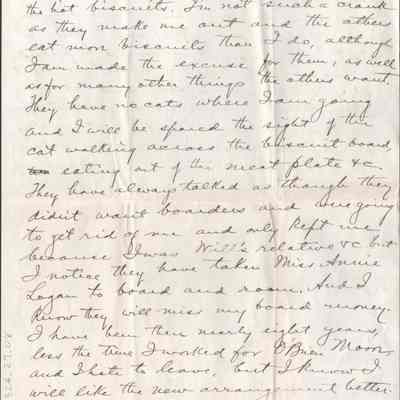 the hot biscuits. I'm not such a crank
as they make me out and the others
eat mor biscuits than I do, although
I am made the excuse for them, as well
as for many other things the others want.
They have no cats where I am going
and I will be spared the sight of the
cat walking across the biscuit board,
eating out of the meat plate &c.
They have always talked as though they
didn't want boarders and were going
to get rid of me and only kept me
because I was Will's relative &c but
I notice they have taken Miss Annie
Logan to board and room. And I
know they will miss my board money.
I have been then nearly eight years,
less the time I worked for O'Brien Moore,
and I hate to leave, but I know I
will like the new arrangement better.